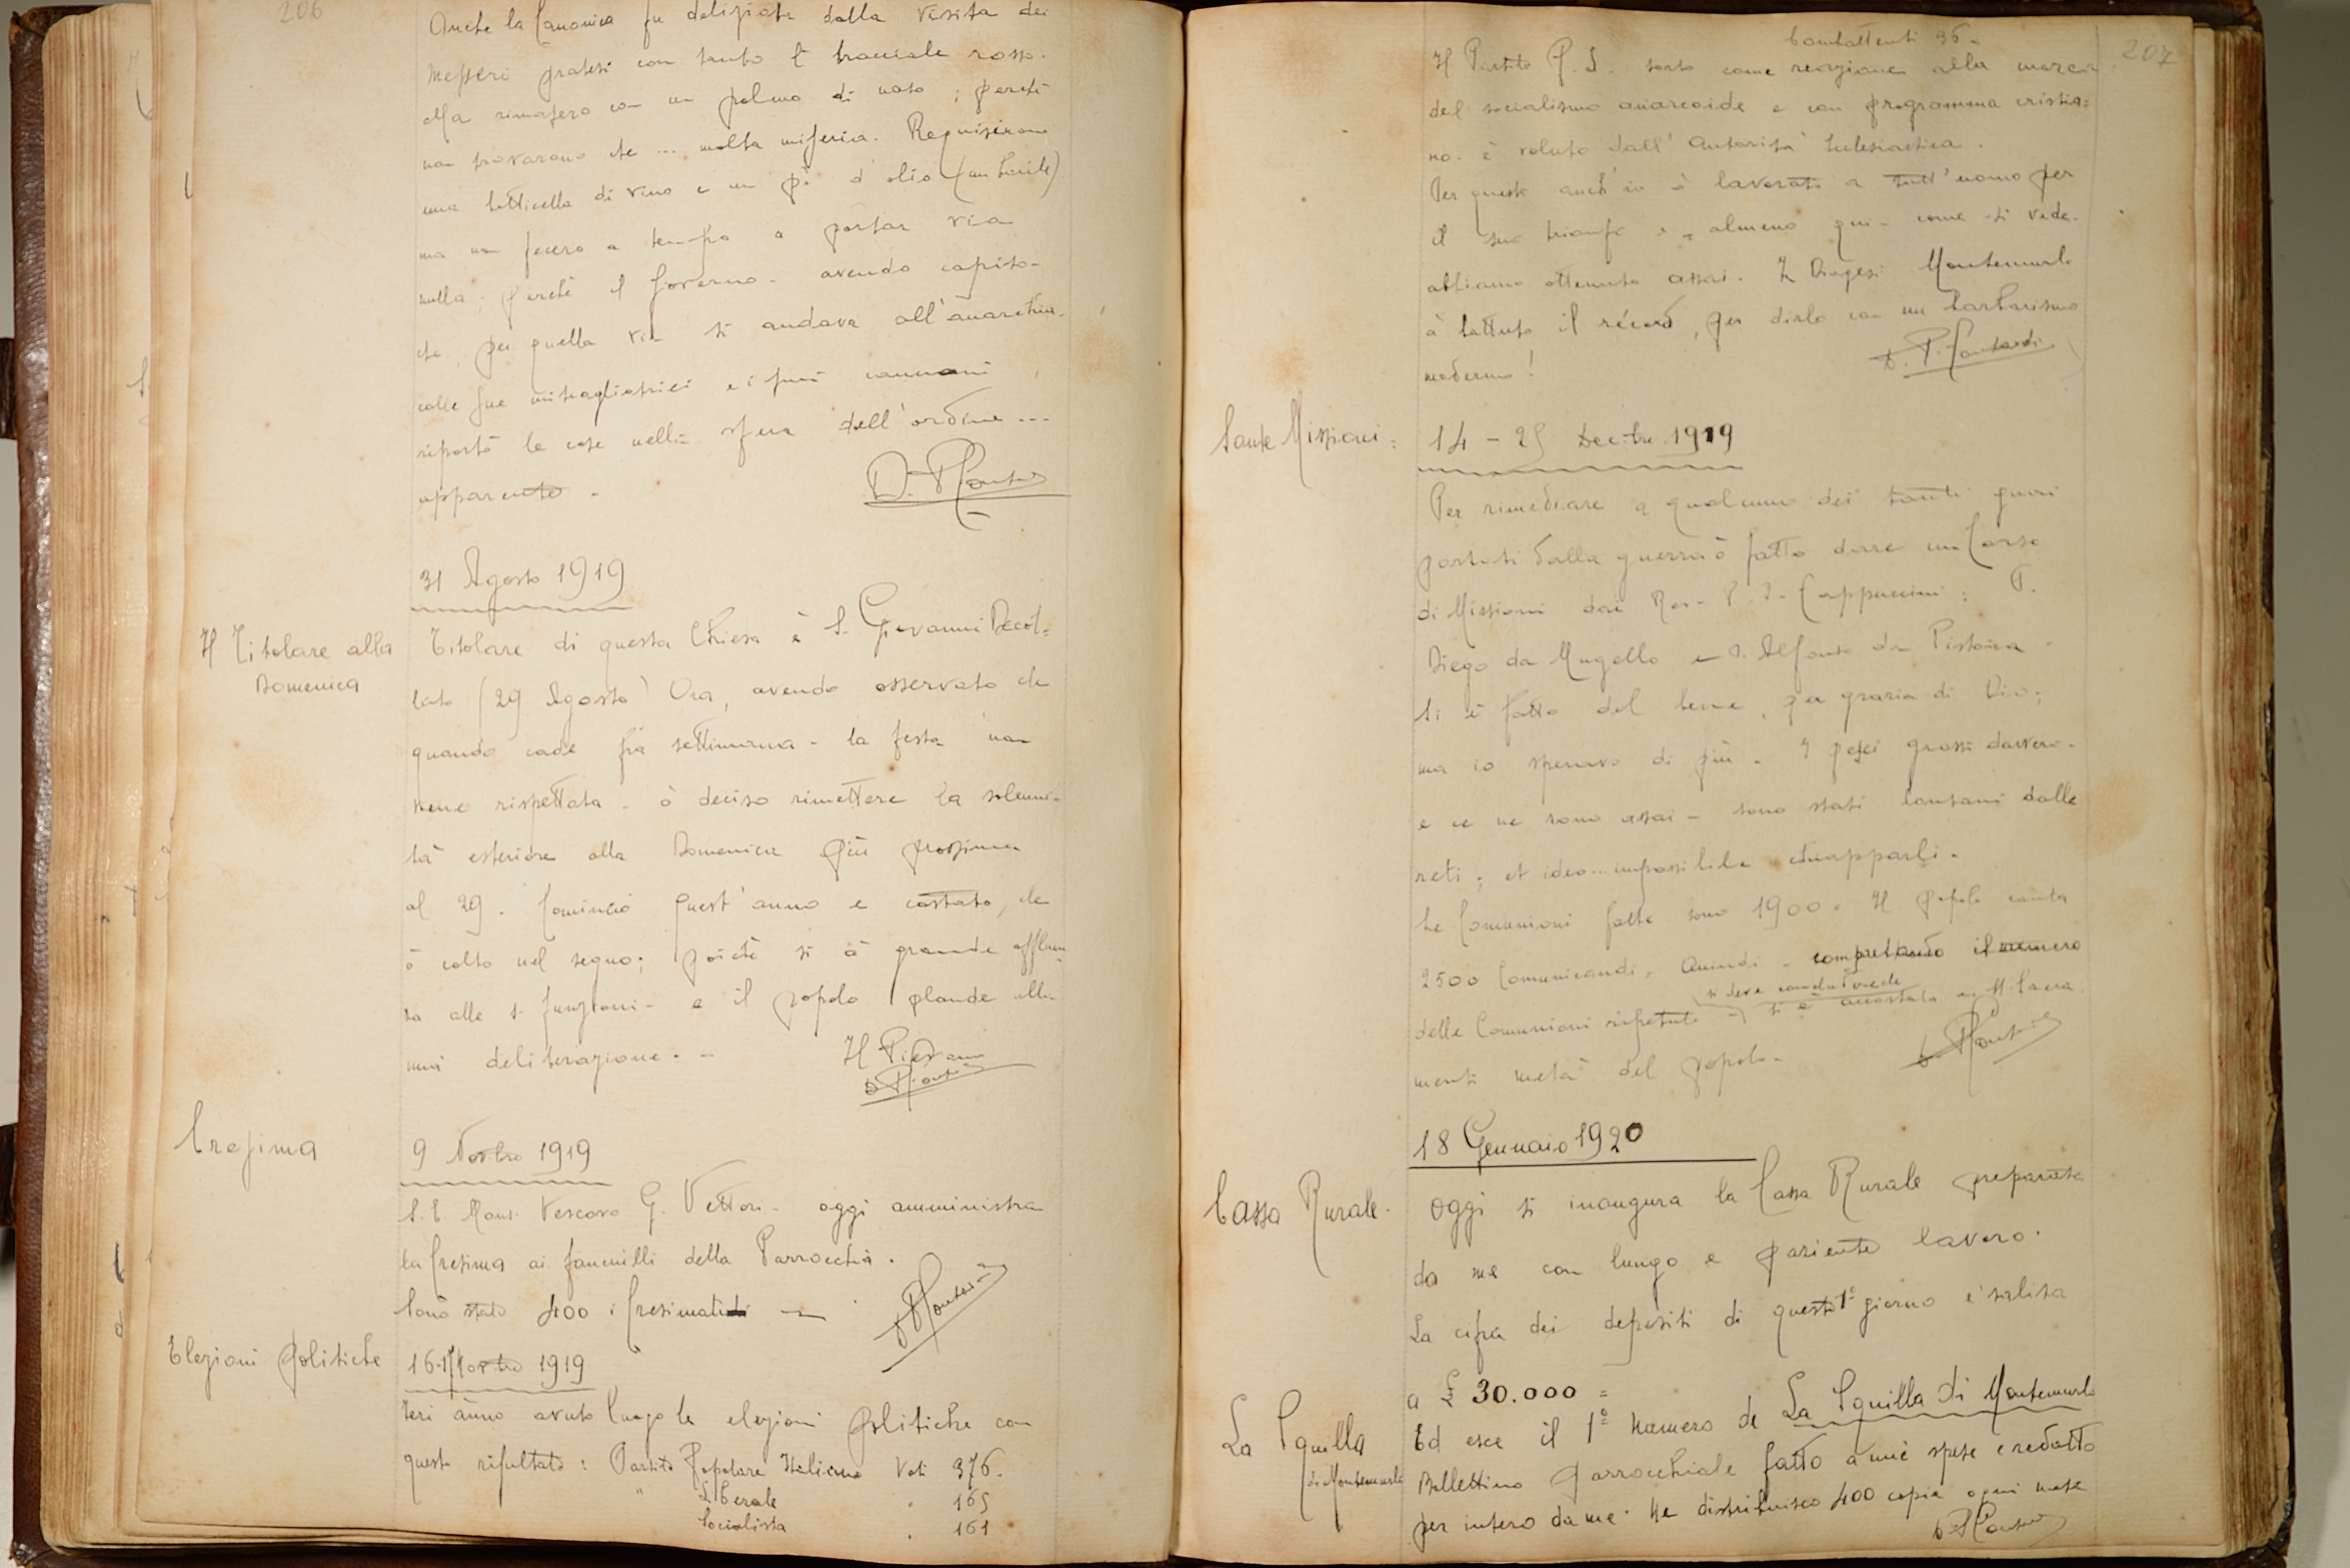 206
Anche la Canonica fu deliziata dalla visita dei
messeri pratesi con tanto di bracciale rosso.
Ma rimasero con un palmo di naso ; perché
non trovarono che ... molta miseria. Requisirono
una botticella di vino e un pò d'olio (un barile)
ma non fecero a tempo a portar via
nulla ; perché il Governo - avendo capito -
che per quella via si andava all'anarchia -
colle sue mitragliatrici e i suoi cannoni
riportò le cose nella sfera dell'ordine ...
apparente .
31 Agosto 1919
Il Titolare alla
Domenica
Titolare di questa Chiesa è S. Giovanni Decol=
lato (29 Agosto) Ora, avendo osservato che
quando cade fra settimana - la festa non
viene rispettata - ò deciso rimettere la solenni-
tà esteriore alla Domenica più prossima
al 29 . Comincio quest'anno e costato, che
ò colto nel segno ; poiché si à grande affluen
za alle s. funzioni - e il popolo plaude alla
mia deliberazione . -
Il Pievano
Cresima
9 Novbre 1919
S. E. Mons. Vescovo G. Vettori - oggi amministra
la Cresima ai fanciulli della Parrocchia .
Sono stati 400 i Cresimati
Elezioni politiche
16-17 Novbre 1919
Ieri ànno avuto luogo le elezioni politiche con
questo risultato : Partito Popolare Italiano Voti 376.
" Liberale " 165
Socialista " 161
207
Combattenti 36 -
Il Partito P. I. sorto come reazione alla marcia
del socialismo anarcoide e con programma cristia=
no - è voluto dall'Autorità Ecclesiastica .
Per questo anch'io ò lavorato a tutt'uomo per
il suo trionfo e - almeno qui - come si vede -
abbiamo ottenuto assai . In Diogesi Montemurlo
à battuto il récord, per dirlo con un barbarismo
moderno !
Sante Missioni :
14 - 25 Decbre 1919
Per rimediare a qualcuno dei tanti guai
portati dalla guerra ò fatto dare un Corso
di Missioni dai Rev. P. P. Cappuccini : P.
Diego da Mugello e P. Alfonso da Pistoia -
Si è fatto del bene , per grazia di Dio ;
ma io speravo di più . I pesci grossi davvero -
e ce ne sono assai - sono stati lontani dalle
reti ; et ideo ... impossibile chiapparli .
Le Comunioni fatte sono 1900 . Il popolo conta
2500 Comunicandi . Quindi - computando il numero
si deve concludere che
delle Comunioni ripetute - si è accostata ai SS. Sacra
menti metà del popolo -
18 Gennaio 1920
Cassa Rurale .
Oggi si inaugura la Cassa Rurale preparata
da me con lungo e paziente lavoro .
La cifra dei depositi di questo 1º giorno è salita
a £ 30.000 =
La Squilla
di Montemurlo
Ed esce il 1º numero de La Squilla di Montemurlo
Bollettino parrocchiale fatto a mie spese e redatto
per intero da me . Ne distribuisco 400 copie ogni mese